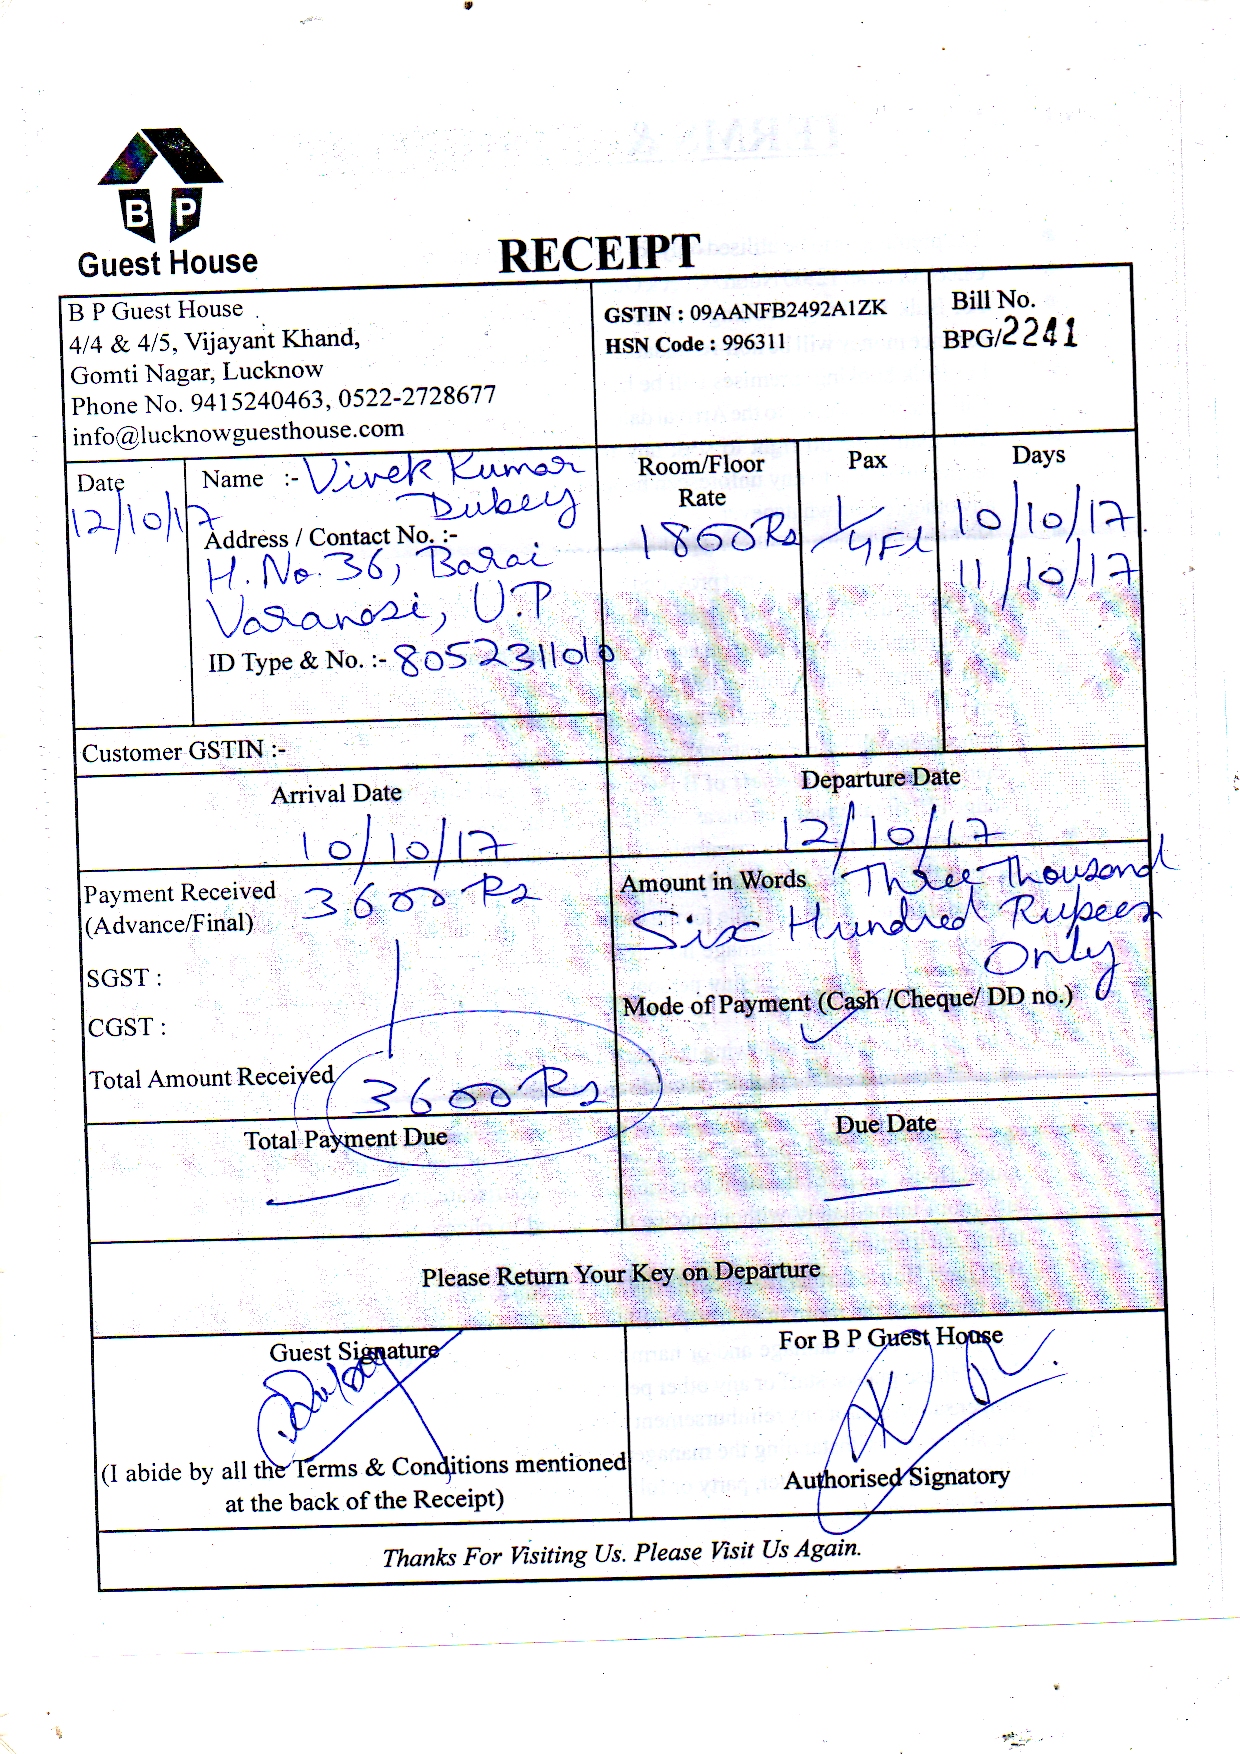 B P
Guest House
RECEIPT
B P Guest House
4/4 & 4/5, Vijayant Khand,
Gomti Nagar, Lucknow
Phone No. 9415240463, 0522-2728677
info@lucknowguesthouse.com
GSTIN : 09AANFB2492A1ZK
HSN Code : 996311
Bill No.
BPG/2241
Date
12/10/17
Name :- Vivek Kumar
Dubey
Address / Contact No. :-
H. No. 36, Barai
Varanasi, U.P
ID Type & No. :- 8052311010
Room/Floor
Rate
1800 Rs
Pax
Days
10/10/17
11/10/17
Customer GSTIN :-
Arrival Date
10/10/17
Departure Date
12/10/17
Payment Received 3600 Rs
(Advance/Final)
SGST :
CGST :
Total Amount Received 3600 Rs
Amount in Words Three Thousand
Six Hundred Rupees
Only
Mode of Payment (Cash /Cheque/ DD no.)
Total Payment Due
Due Date
Please Return Your Key on Departure
Guest Signature
(I abide by all the Terms & Conditions mentioned
at the back of the Receipt)
For B P Guest House
Authorised Signatory
Thanks For Visiting Us. Please Visit Us Again.